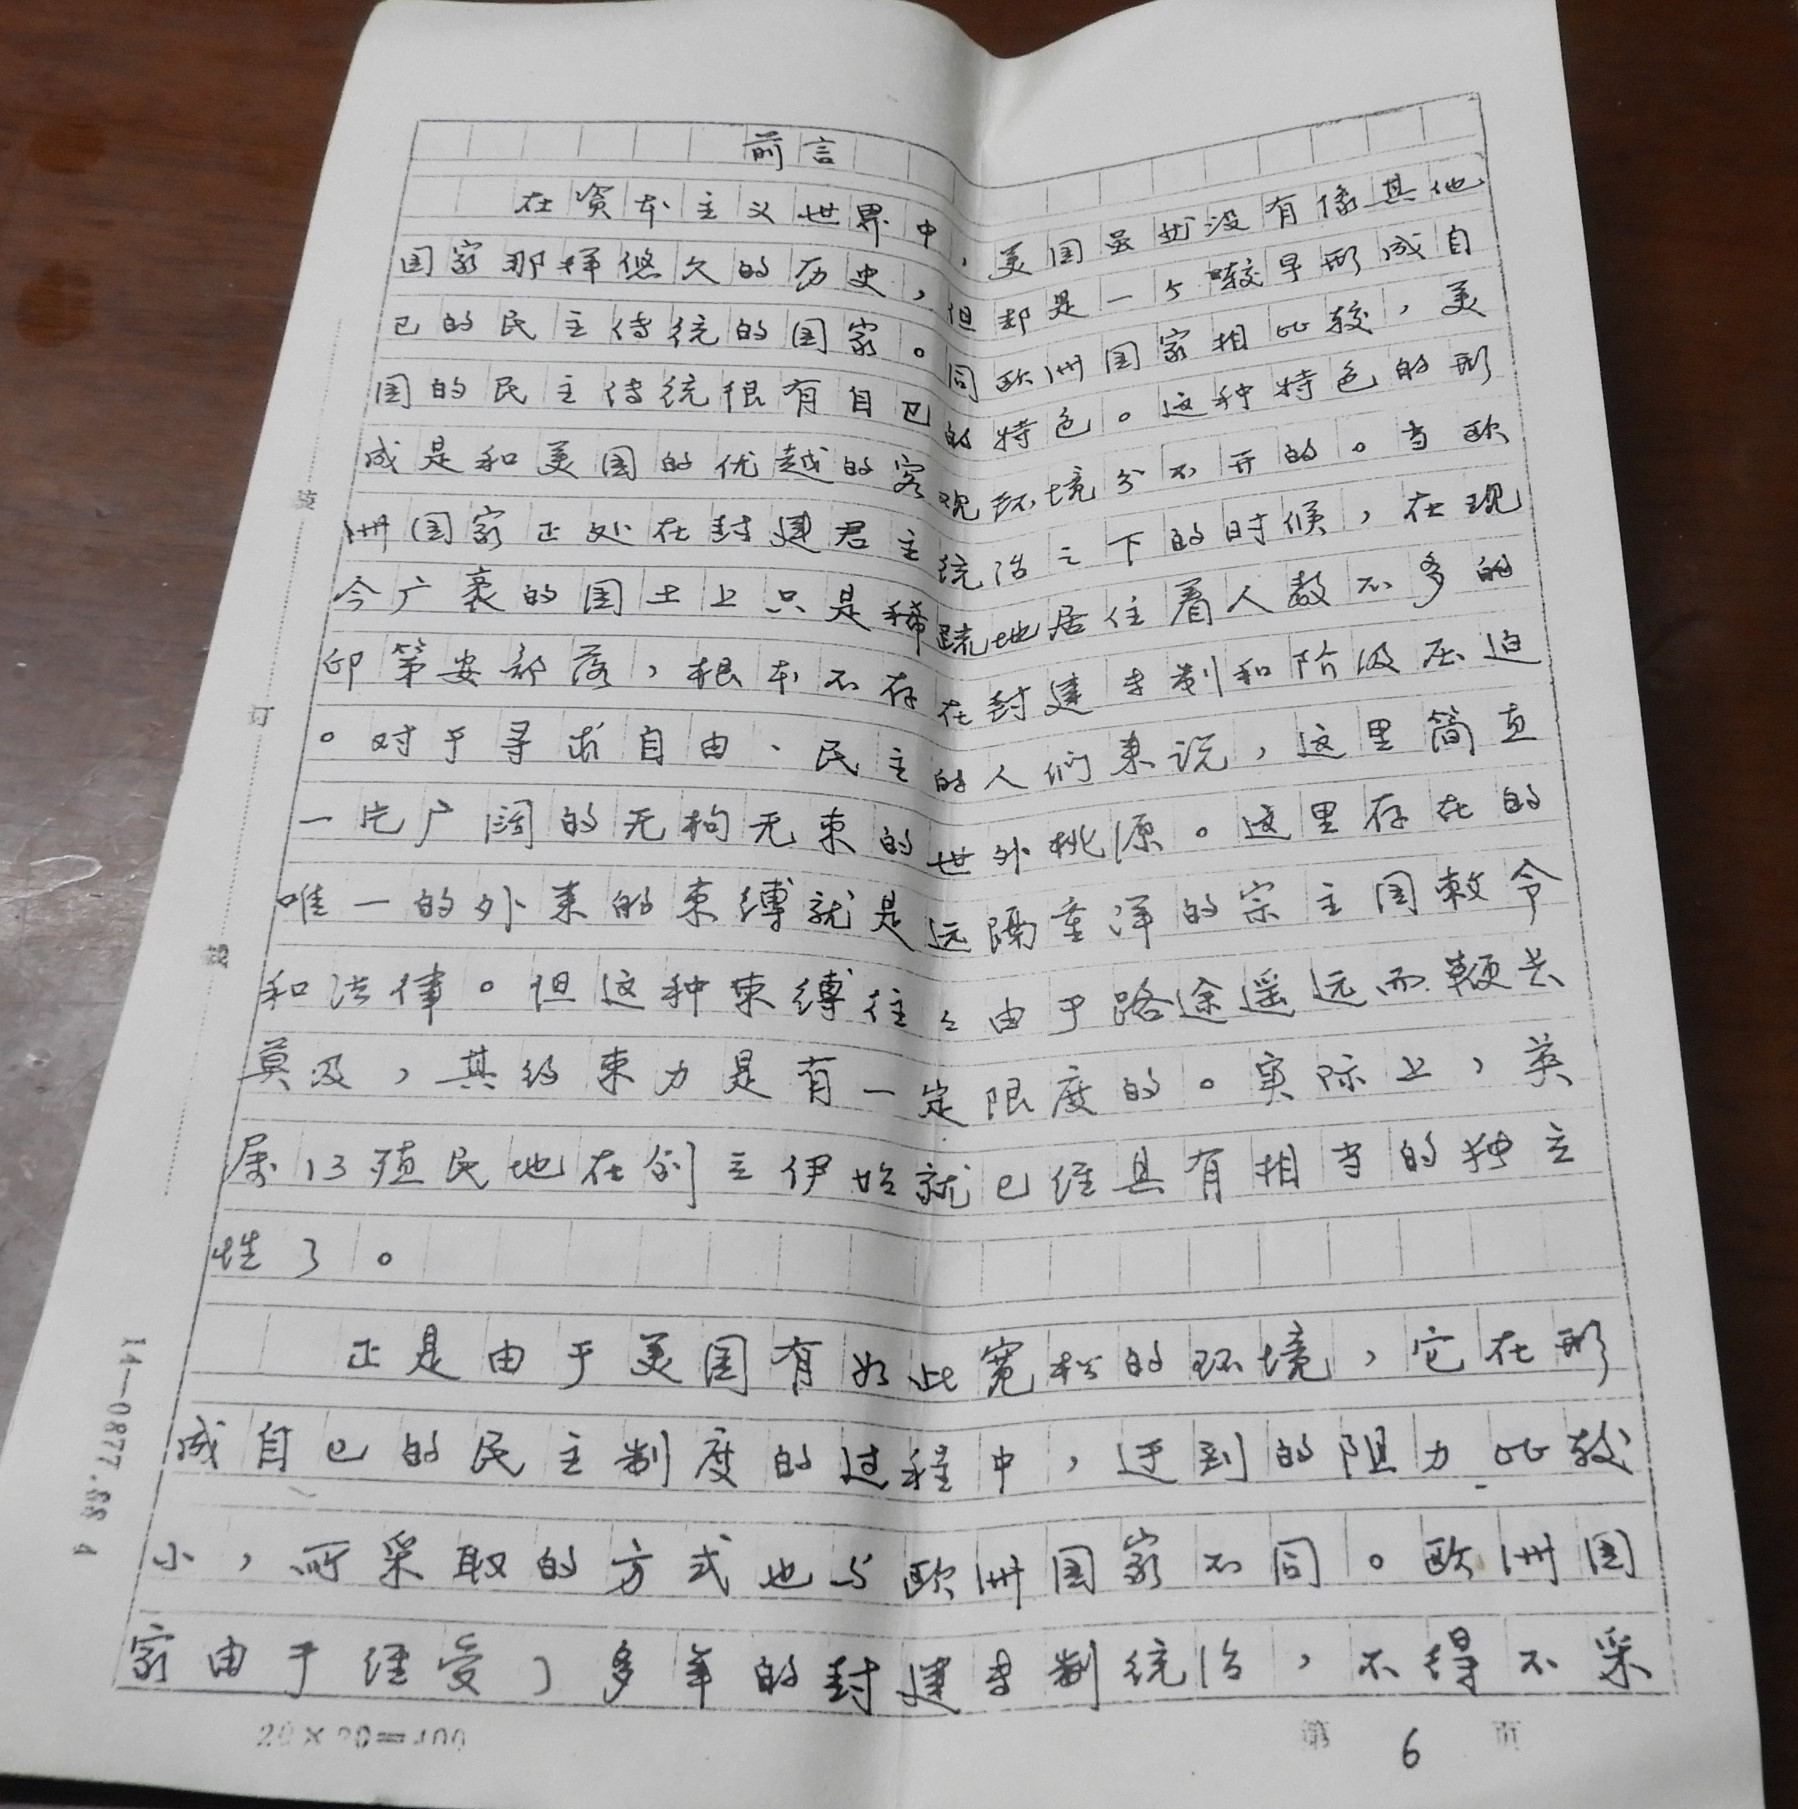 前言
在资本主义世界中,美国虽然没有像其他
国家那样悠久的历史,但却是一个较早形成自
己的民主传统的国家。同欧洲国家相比较,美
国的民主传统很有自己的特色。这种特色的形
成是和美国的优越的客观环境分不开的。当欧
洲国家正处在封建君主统治之下的时候,在现
今广袤的国土上只是稀疏地居住着人数不多的
印第安部落,根本不存在封建专制和阶级压迫
。对于寻求自由、民主的人们来说,这里简直
一片广阔的无拘无束的世外桃源。这里存在的
唯一的外来的束缚就是远隔重洋的宗主国敕令
和法律。但这种束缚往々由于路途遥远而鞭长
莫及,其约束力是有一定限度的。实际上,英
属13殖民地在创立伊始就已经具有相当的独立
性了。
正是由于美国有如此宽松的环境,它在形
成自己的民主制度的过程中,遇到的阻力比较
小,所采取的方式也与欧洲国家不同。欧洲国
家由于经受了多年的封建专制统治,不得不采
装
订
线
14—0877.88 4
20×20=400
第 6 页